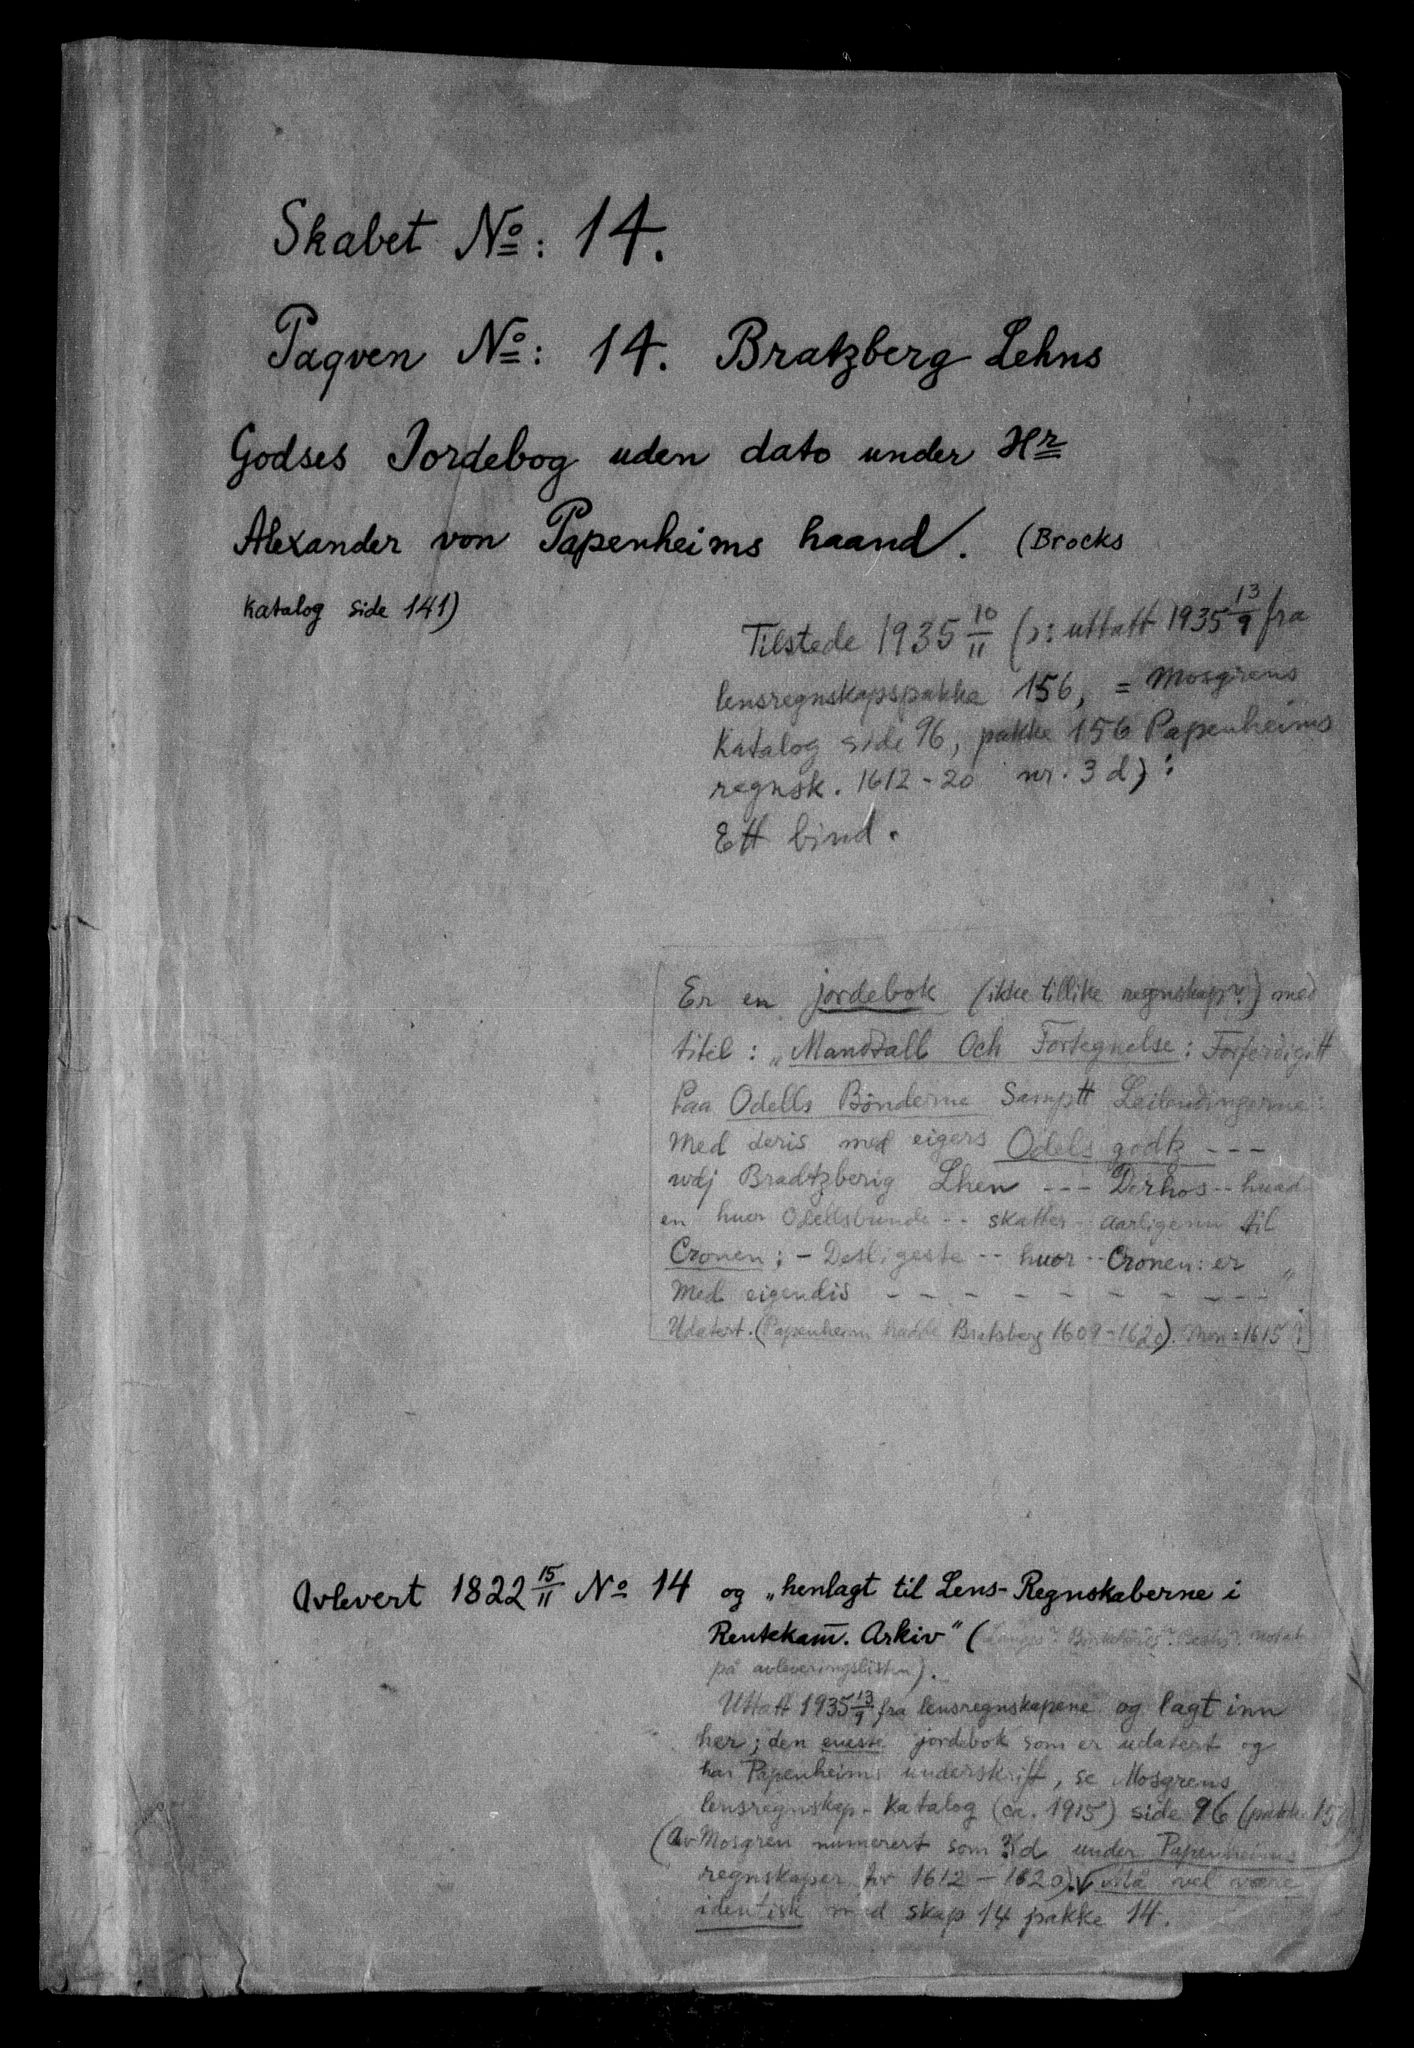 Skabet No: 14.
Paqven No: 14. Bratzberg Lehns
Godses Jordebog uden dato under Hr
Alexander von Papenheims haand. (Brocks
katalog side 141)
Tilstede 1935 10/11 (ɔ: uttatt 1935 13/9 fra
lensregnskapspakke 156, = Mosgrens
Katalog side 96, pakke 156 Papenheims
regnsk. 1612-20 nr. 3 d):
Ett bind.
Er en jordebok (ikke tillike regnskap?) med
titel: „Mandtall Och Fortegnelse: Forferdigitt
Paa Odells Bønderne Samptt Leilendingerne:
Med deris med eigers Odels godtz ---
wdj Bradtzberig Lhen --- Derhos -- huad
en huer Odellsbunde -- skatter - aarligenn til
Cronen; - Desligeste -- huor -- Cronen: er
Med eigendis - - - - - - - - - "
Udatert. (Papenheim hadde Bratsberg 1609-1620). Mon: 1615?
Avlevert 1822 15/11 No 14 og „henlagt til Lens-Regnskaberne i
Rentekam̄. Arkiv" ( notat
på avleveringslisten).
Uttatt 1935 13/9 fra lensregnskapene og lagt inn
her; den eneste jordebok som er udatert og
har Papenheims underskrift, se Mosgrens
lensregnskap-Katalog (ca. 1915) side 96 (pakke 156)
(Av Mosgren numerert som 3/d under Papenheims
regnskaper for 1612-1620). Må vel være
identisk med skap 14 pakke 14.